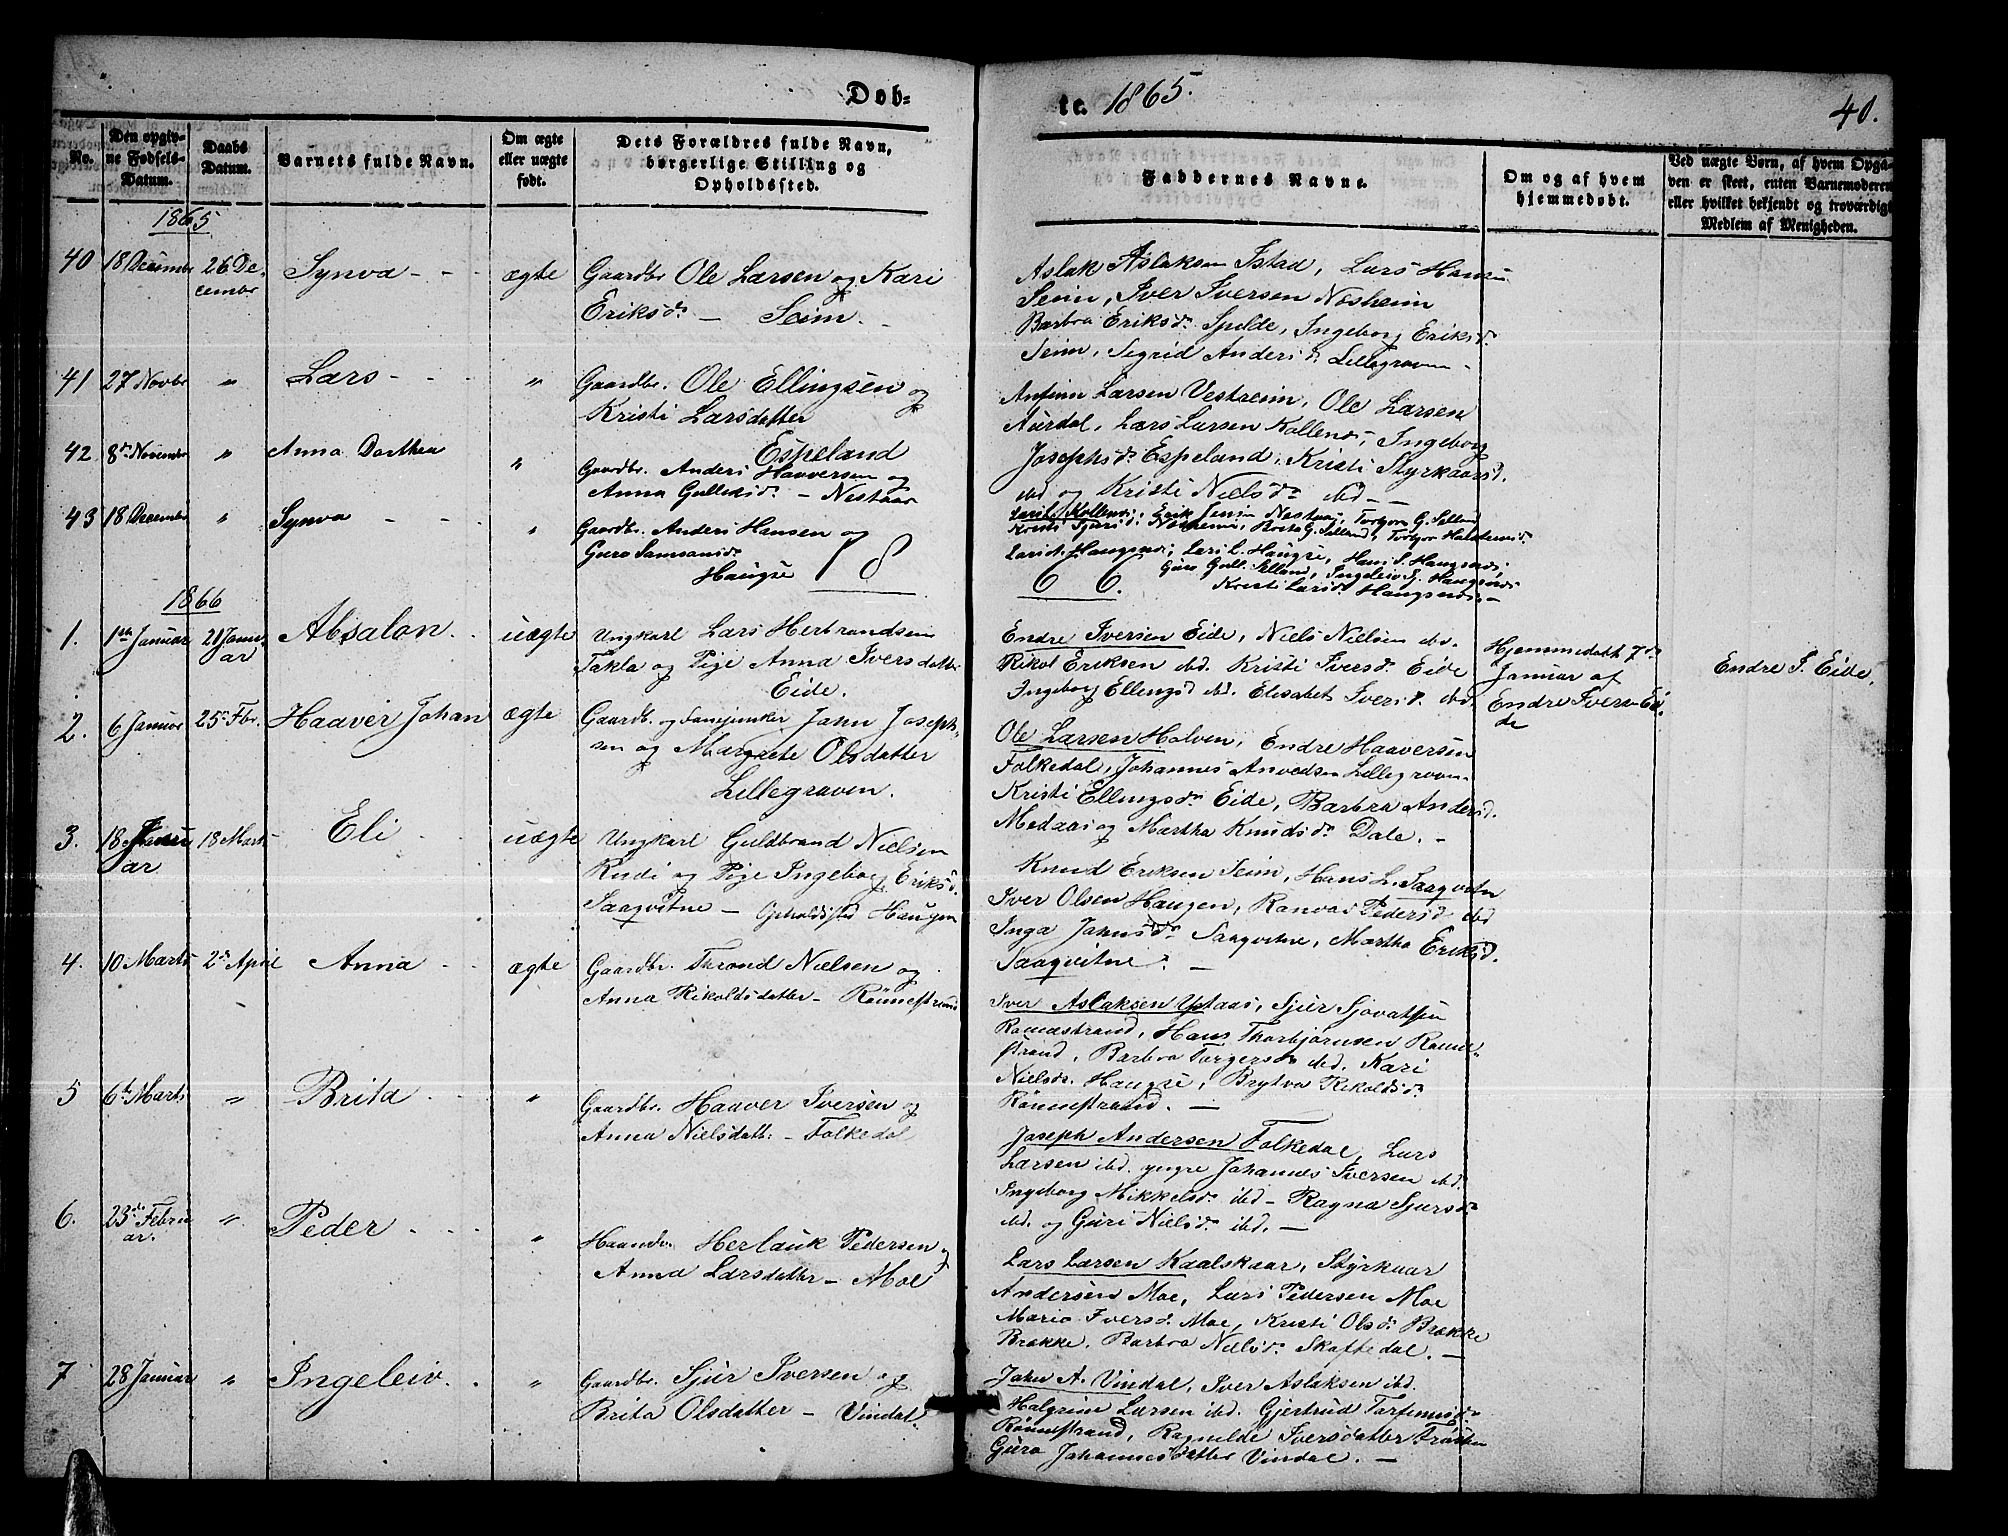 Døb-
te. 1865.
40.
No.
Den opgiv-
ne Fødsels-
Datum.
Daabs
Datum.
Barnets fulde Navn.
Om ægte
eller uægte
født.
Dets Forældres fulde Navn,
borgerlige Stilling og
Opholdssted.
Faddernes Navne.
Om og af hvem
hjemmedøbt.
Ved uægte Børn, af hvem Opga-
ven er skeet, enten Barnemoderen
eller hvilket bekjendt og troværdigt
Medlem af Menigheden.
1865
40 18 Decembr 26 De-
cembr
Synva - - -
ægte
Gaardbr Ole Larsen og Kari
Eriksdr. - Seim. -
Aslak Aslaksen Istad, Lars Hansen
Seim, Iver Iversen Næsheim
Barbra Eriksdr Spilde, Ingeborg Eriksd.
Seim, Sigrid Andersd. Lillegraven -
41 27 Novbr " Lars - - - "
Gaardbr. Ole Ellingsen og
Kristi Larsdatter
Espeland
Anfinn Larsen Vestreim, Ole Larsen
Aurdal, Lars Larsen Kollenæs, Ingeborg
Josephsdr Espeland, Kristi Styrkaarsd.
ibd og Kristi Nielsdr ibd -
42 8de Novembr " Anna Dorthea "
Gaardbr. Anders Haaversen og
Anna Gullesdr. - Nestaas
43 18 Decembr " Synva - - "
Gaardbr. Anders Hansen og
Guro Samsonsdr
Haugse
18
Larsdr. Haugse; Lars L. Haugse, Hans S.
66.
Kristi Larsdr
1866
1. 1ste Januar 21 Janu-
ar
Absalon. - uægte
Ungkarl Lars Herbrandsen
Takla og Pige Anna Iversdatter
Eide.
Endre Iversen Eide, Niels Nielsen ibd.
Rikol Eriksen ibd. Kristi Iversd. Eide
Ingeborg Ellingsd ibd. Elisabet Iversd. ibd.
Hjemmedøbt 7de
Januar af
Endre Iversen Ei-
de
Endre I. Eide.
2. 6 Januar 25de Fbr. Haaver Johan ægte
Gaardb. og Fanejunker John Joseph-
sen og Margrete Olsdatter
Lillegraven.
Ole Larsen Holven, Endre Haaversen
Folkedal, Johannes Anvedsen Lillegraven
Kristi Ellingsdr Eide, Barbra Andersd.
Medaas og Martha Knudsdr Dale. -
3. 18 Janu-
ar
18 Marts Eli - uægte
Ungkarl Guldbrand Nielsen
Rudi og Pige Ingeborg Eriksd.
Saaqvitne - Opholdssted Haugen
Knud Eriksen Seim, Hans L. Saaqvitne
Iver Olsen Haugen, Ranvei Pedersd ibd
Inga Johnsdr Saaqvitne, Martha Eriksd.
Saaqvitne. -
4. 10 Marts 2den April Anna - - ægte
Gaardbr. Thrond Nielsen og
Anna Rikoldsdatter - Rønnestrand
Iver Aslaksen Ystaas, Sjur Sjovatsen
Rønnestrand, Hans Thorbjørnsen Rønne-
strand, Barbra Torgersdr ibd. Kari
Nielsdr. Haugse, Brytva Rikoldsdr
Rønnestrand. -
5 6te Marts " Brita - - "
Gaardbr. Haaver Iversen og
Anna Nielsdatt. - Folkedal
Joseph Andersen Folkedal, Lars
Larsen ibd. yngre Johannes Iversen ibd.
Ingeborg Mikkelsdr ibd - Ragna Sjursdr
ibd. og Guri Nielsdr. ibd. -
6. 23de Febru
ar.
" Peder - - - "
Haandv. Herlauk Pedersen og
Anna Larsdatter - Moe
Lars Larsen Kaalskaar, Styrkaar
Andersen Moe, Lars Pedersen Moe
Maria Iversd. Moe, Kristi Olsdr Brække
Brække. Barbra Nielsdr. Skaftedal. -
7 28 Januar " Ingeleiv. - "
Gaardbr. Sjur Iversen og
Brita Olsdatter - Vindal.
John A. Vindal, Iver Aslaksen ibd.
Halgrim Larsen ibd. Gjertrud Torfinnsdr
Rønnestrand, Ragnilde Iversdatter
Guro Johannesdatter Vindal. -